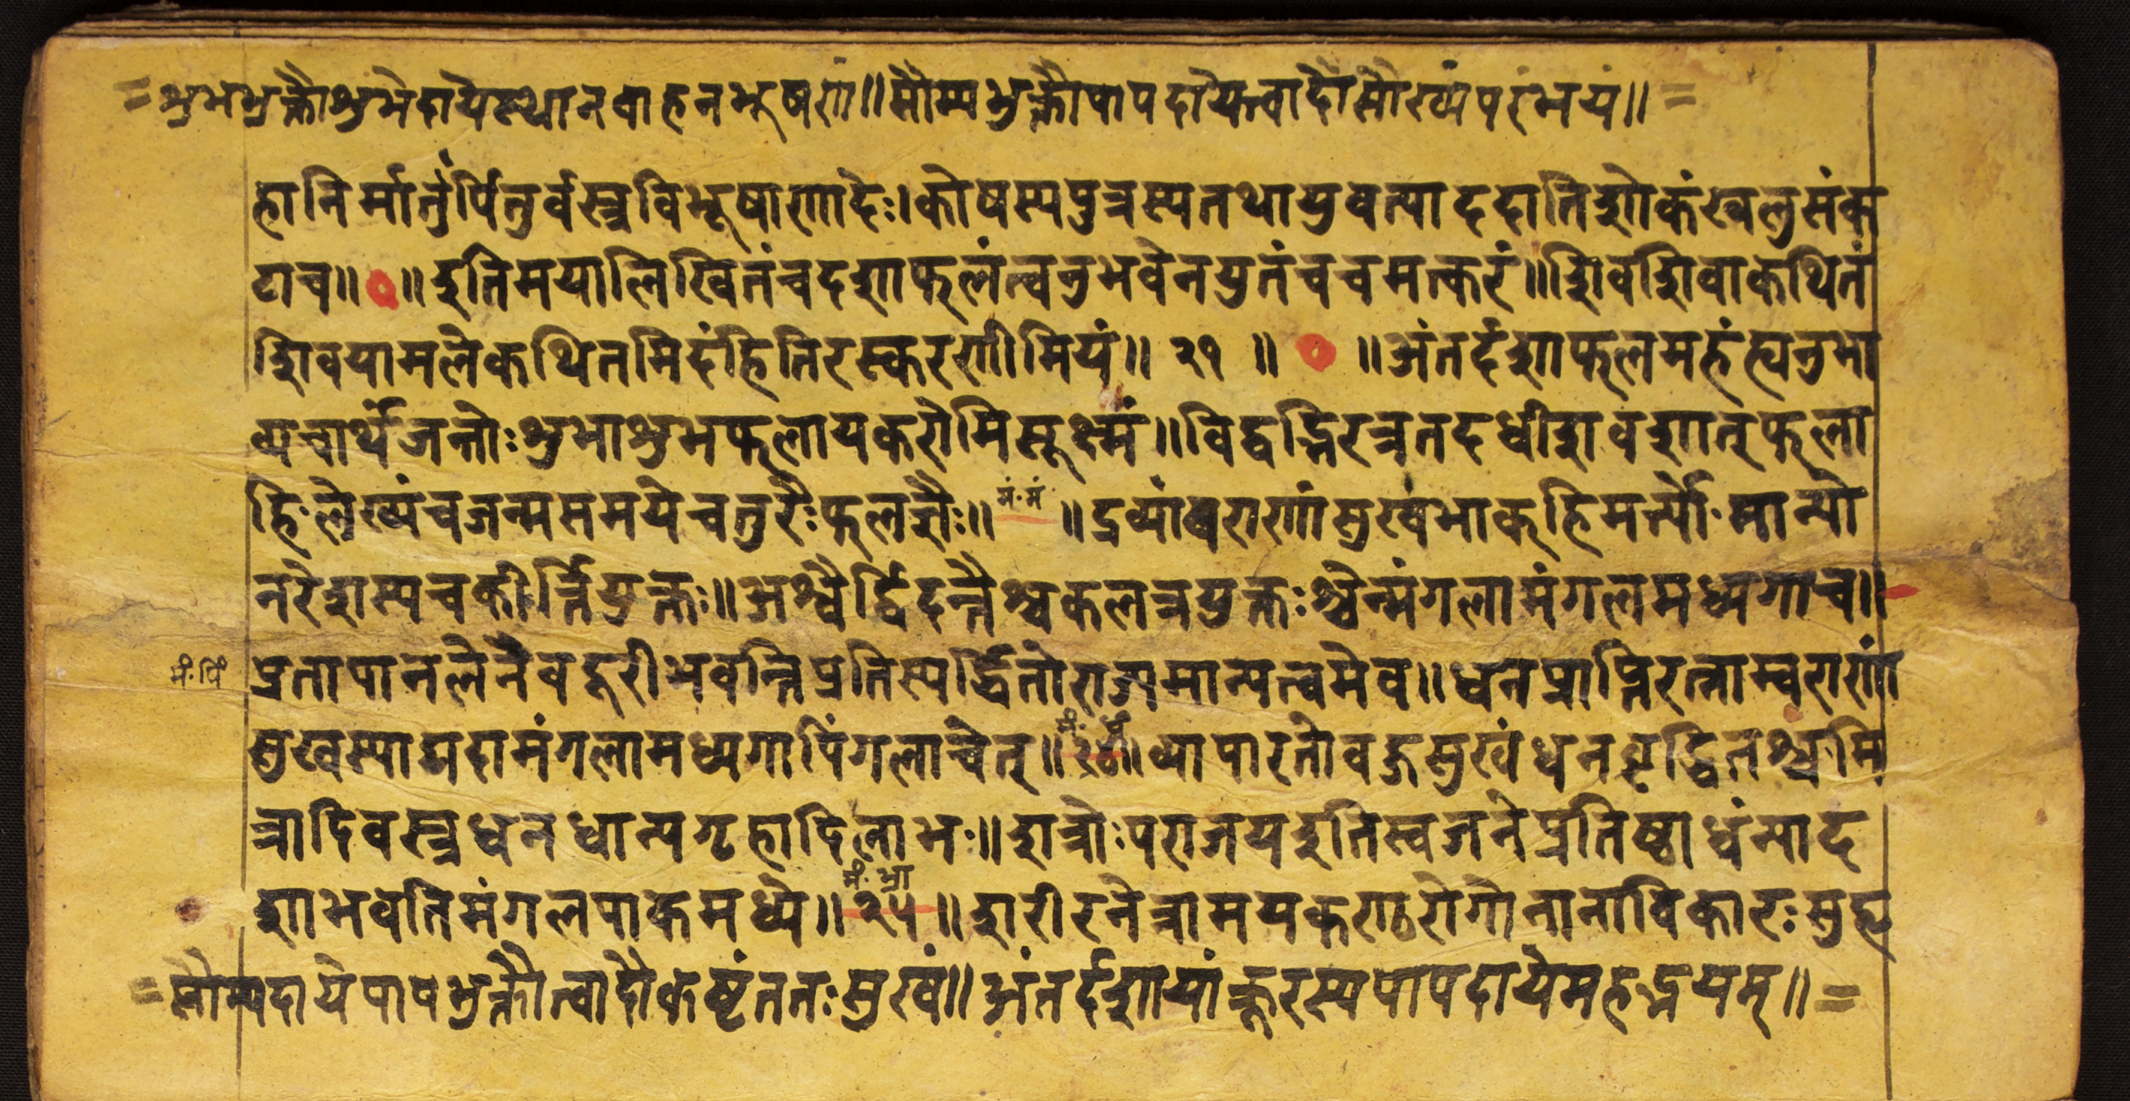 शुभभुक्तौशुभेदायेस्थानवाहनभूषणं॥सौम्यभुक्तौपापदायेत्वादौसौख्यंपरंभयं॥
हानिर्मातुर्पितुर्वस्त्रविभूषाणादेः।कोषस्यपुत्रस्यतथायुवत्याददातिशोकंखलुसंक
टाच॥०॥इतिमयालिखितंचदशाफलंत्वनुभवेनयुतंचचमत्करं॥शिवशिवाकथितं
शिवयामलेकथितमिदंहितिरस्करणीमियं॥२१॥०॥अंतर्दशाफलमहंह्यनुभा
व्यचार्थेजन्तोःशुभाशुभफलायकरोमिसूक्ष्मं॥विद्वद्भिरत्रतदधीशवशात्फला
हिलेख्यंचजन्मसमयेचतुरैःफलज्ञैः॥ मं·मं ॥द्रव्यांबराणांसुखभाक्हिमर्त्योमान्यो
नरेशस्यचकीर्त्तियुक्तः॥अश्वैर्द्विदन्तैश्चकलत्रयुक्तःश्चेन्मंगलामंगलमध्यगाच॥
मं·पिं प्रतापानलेनैवदूरीभवन्तिप्रतिस्पर्द्धिनोराजमान्यत्वमेव॥धनप्राप्तिरत्नाम्बराणां
सुखस्याद्यदामंगलामध्यगापिंगलाचेत्॥ मं·धं २४॥व्यापारतोवज्रसुखंधनवृद्धितश्चमि
त्रादिवस्त्रधनधान्यगृहादिलाभः॥शत्रोःपराजयइतिस्वजनेप्रतिष्ठाधंन्याद
शाभवतिमंगलपाकमध्ये॥ मं·भ्रा २५॥शरीरनेत्रामयकण्ठरोगोनानाविकारःसुह्य
सौम्यदायेपापभुक्तौत्वादौकष्टंततःसुखं॥अंतर्दशायांक्रूरस्यपापदायेमहद्भयम्॥